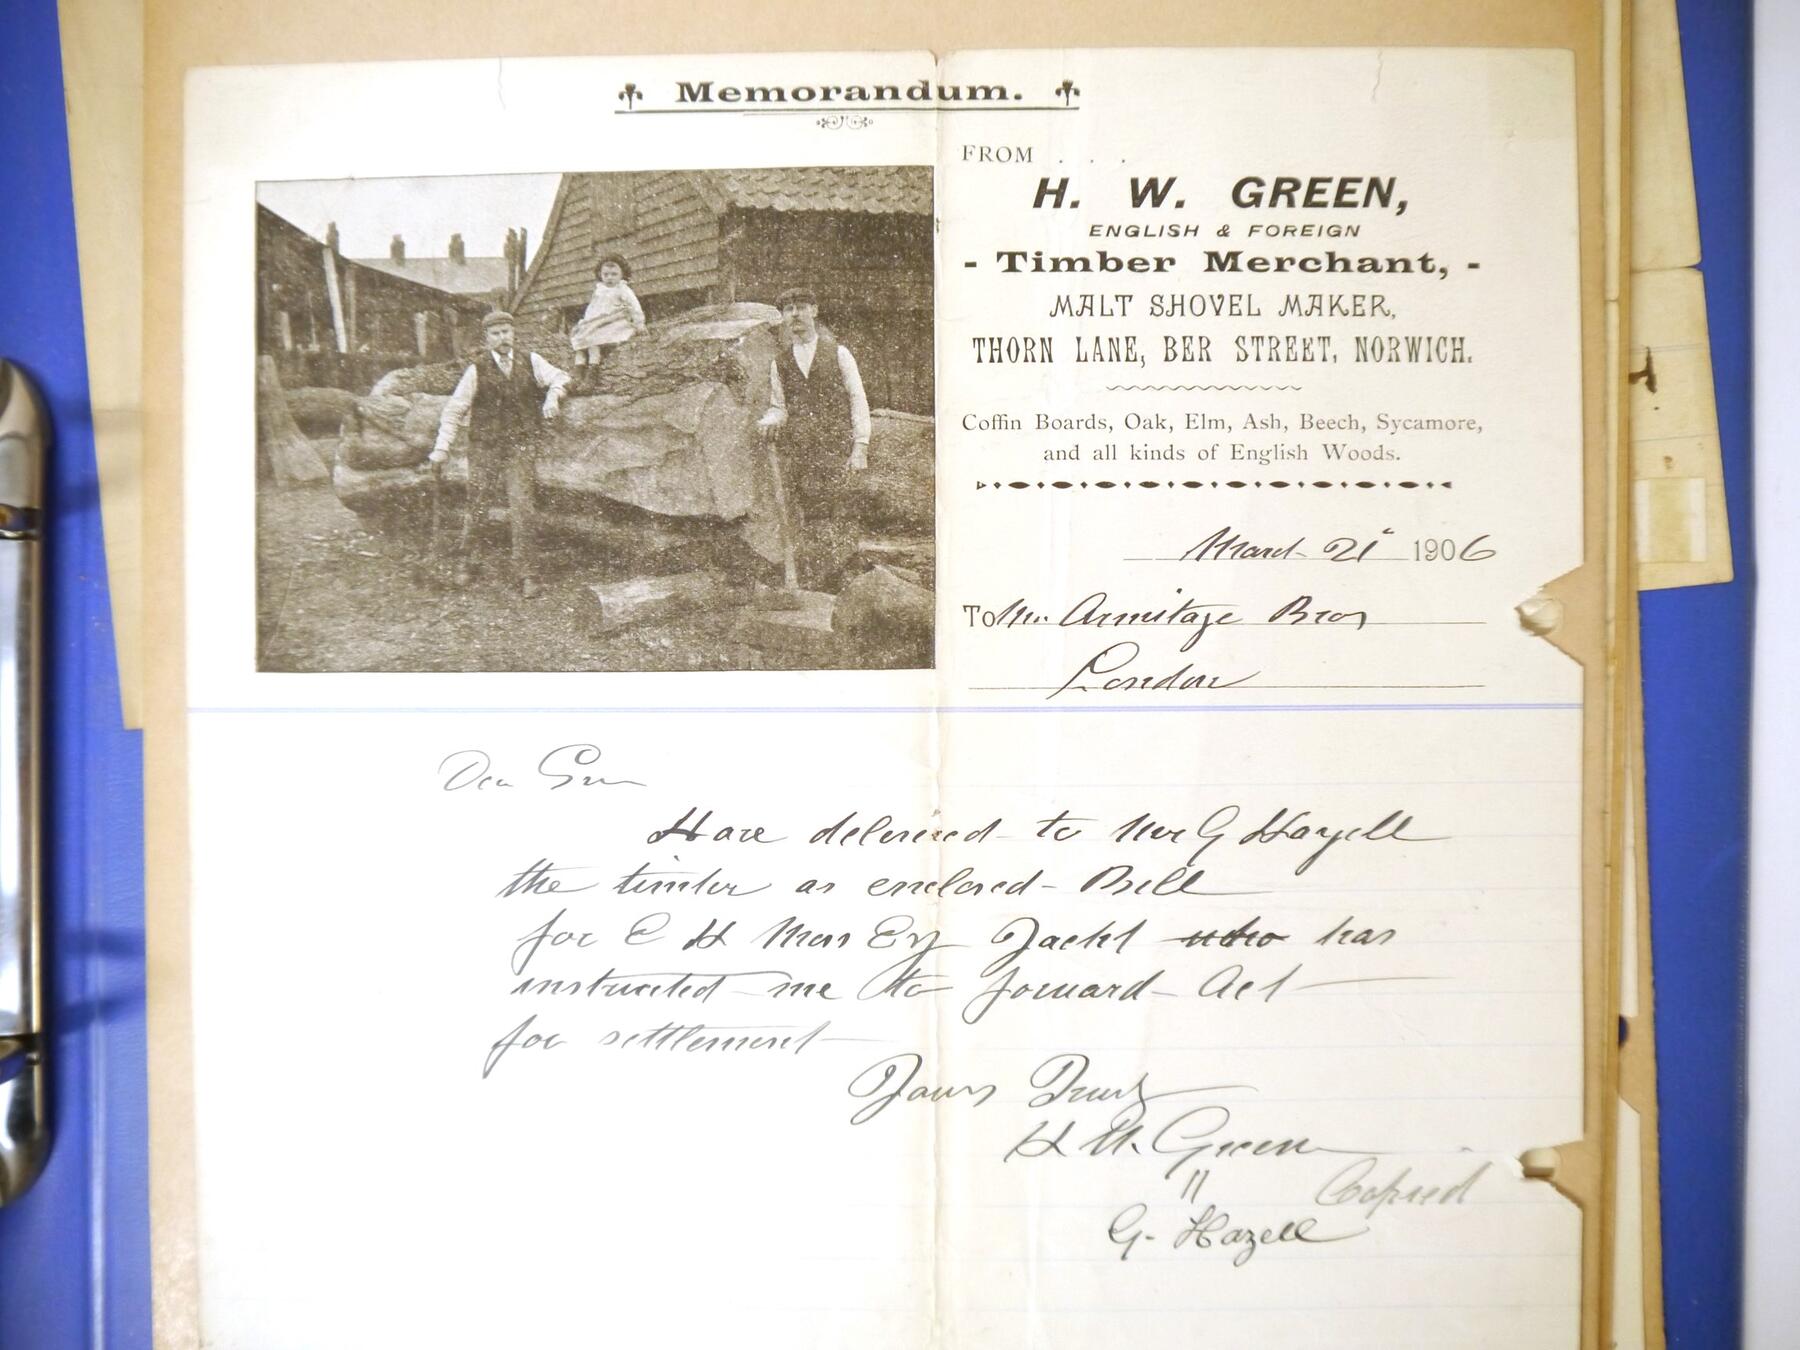 Memorandum.
FROM . . .
H. W. GREEN,
ENGLISH & FOREIGN
- Timber Merchant, -
MALT SHOVEL MAKER,
THORN LANE, BER STREET, NORWICH.
Coffin Boards, Oak, Elm, Ash, Beech, Sycamore,
and all kinds of English Woods.
March 21st 1906
To Armitage Bros
London
Dear
Have delivered to Mr G Hazell
the timber as enclosed Bill
for E H has
instructed me to forward Act
for settlement
Yours Truly
H W. Green
"
Copied
G. Hazell